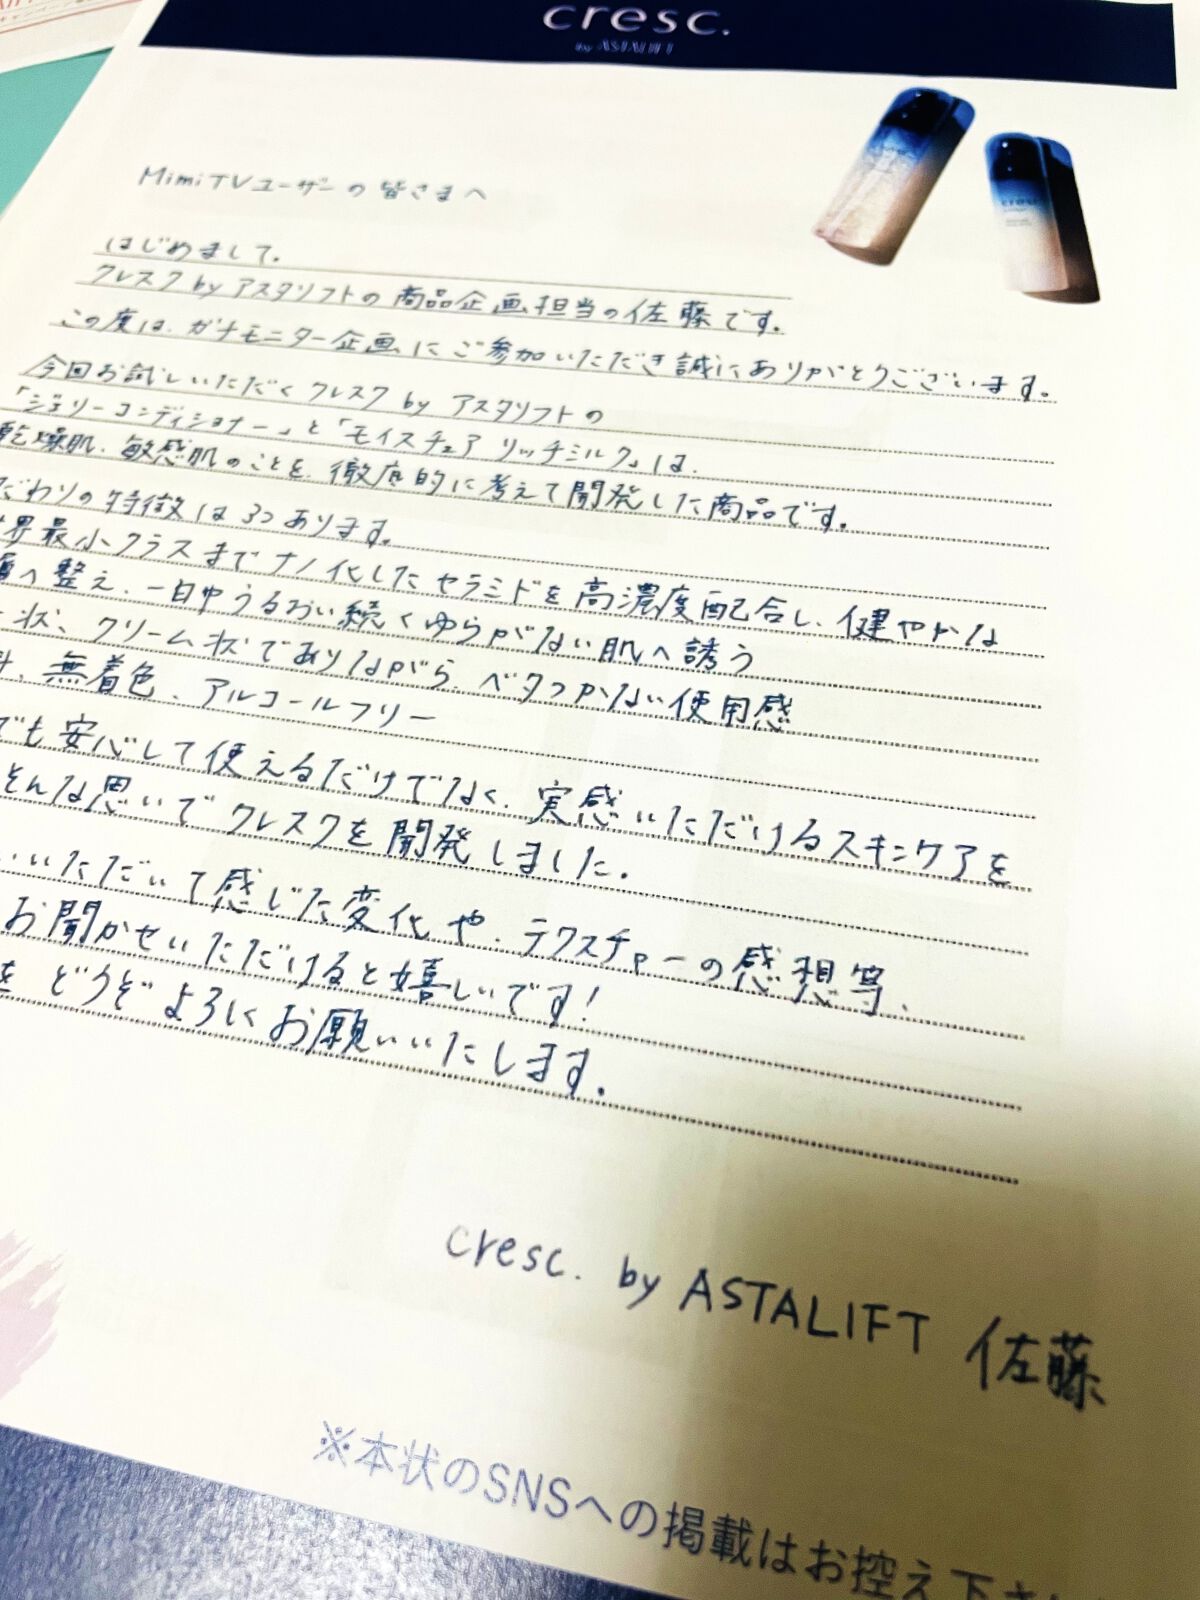 cresc.
by ASTALIFT
MimiTVユーザーの皆さまへ
はじめまして。
クレスク by アスタリフトの商品企画担当の佐藤です。
この度は、ガチモニター企画にご参加いただき誠にありがとうございます。
今回お試しいただくクレスク by アスタリフトの
「ジェリーコンディショナー」と「モイスチュア リッチミルク」は、
乾燥肌、敏感肌のことを、徹底的に考えて開発した商品です。
だわりの特徴は3つあります。
界最小クラスまでナノ化したセラミドを高濃度配合し、健やかな
層へ整え、一日中うるおい続くゆらがない肌へ誘う
状、クリーム状でありながら、ベタつかない使用感
料、無着色、アルコールフリー
でも安心して使えるだけでなく、実感いただけるスキンケアを
そんな思いでクレスクを開発しました。
いただいて感じた変化や、テクスチャーの感想等、
お聞かせいただけると嬉しいです!
を どうぞよろしくお願いいたします。
cresc. by ASTALIFT 佐藤
※本状のSNSへの掲載はお控え下さい
cresc.